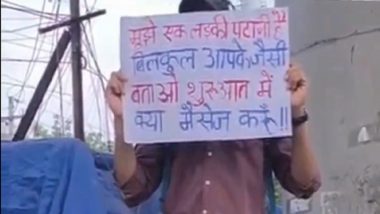 मुझे एक लड़की पटानी है
बिलकुल आपके जैसी
बताओ शुरुआत में
क्या मैसेज करूँ!!